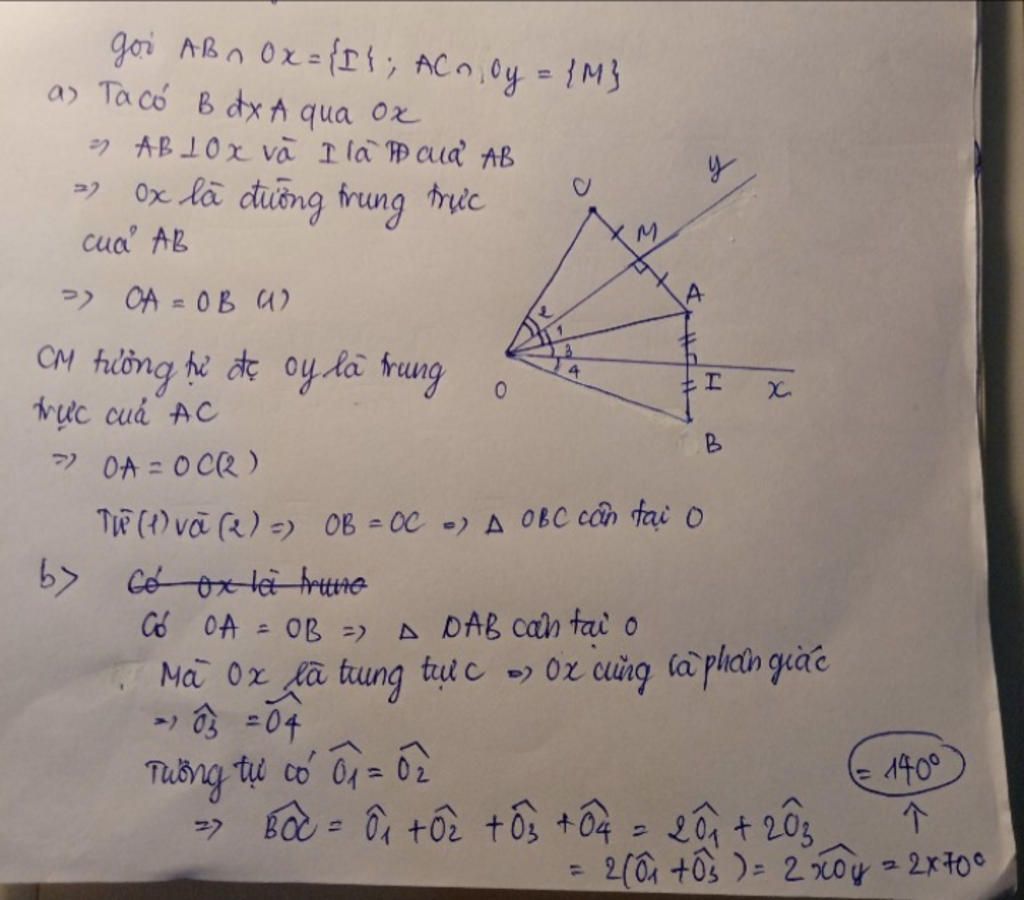 Gọi AB ∩ Ox = {I}; AC ∩ Oy = {M}
a) Ta có B đx A qua Ox
=> AB⊥Ox và I là TĐ của AB
=> Ox là đường trung trực
của AB
=> OA = OB (1)
CM tương tự đc Oy là trung
trực của AC
=> OA = OC(2)
Từ (1) và (2) => OB = OC => Δ OBC cân tại O
b) Có Ox là trung
Có OA = OB => Δ OAB cân tại O
Mà Ox là trung trực => Ox cũng là phân giác
=> Ô3 = Ô4
Tương tự có Ô1 = Ô2
=> BÔC = Ô1 + Ô2 + Ô3 + Ô4 = 2Ô1 + 2Ô3
= 2(Ô1 + Ô3) = 2 xÔy = 2x70°
= 140°
↑
y
C
M
A
2
1
3
4
O
I
x
B